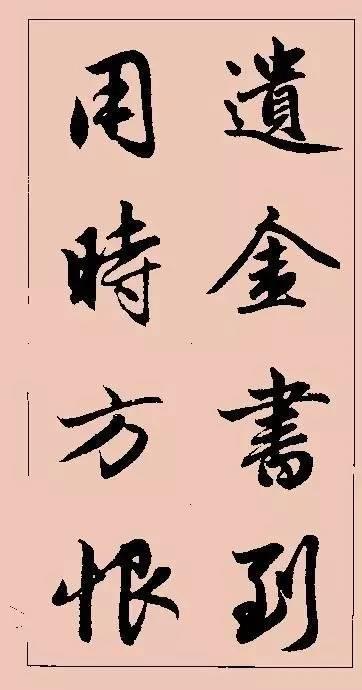 遺金書到
用時方恨